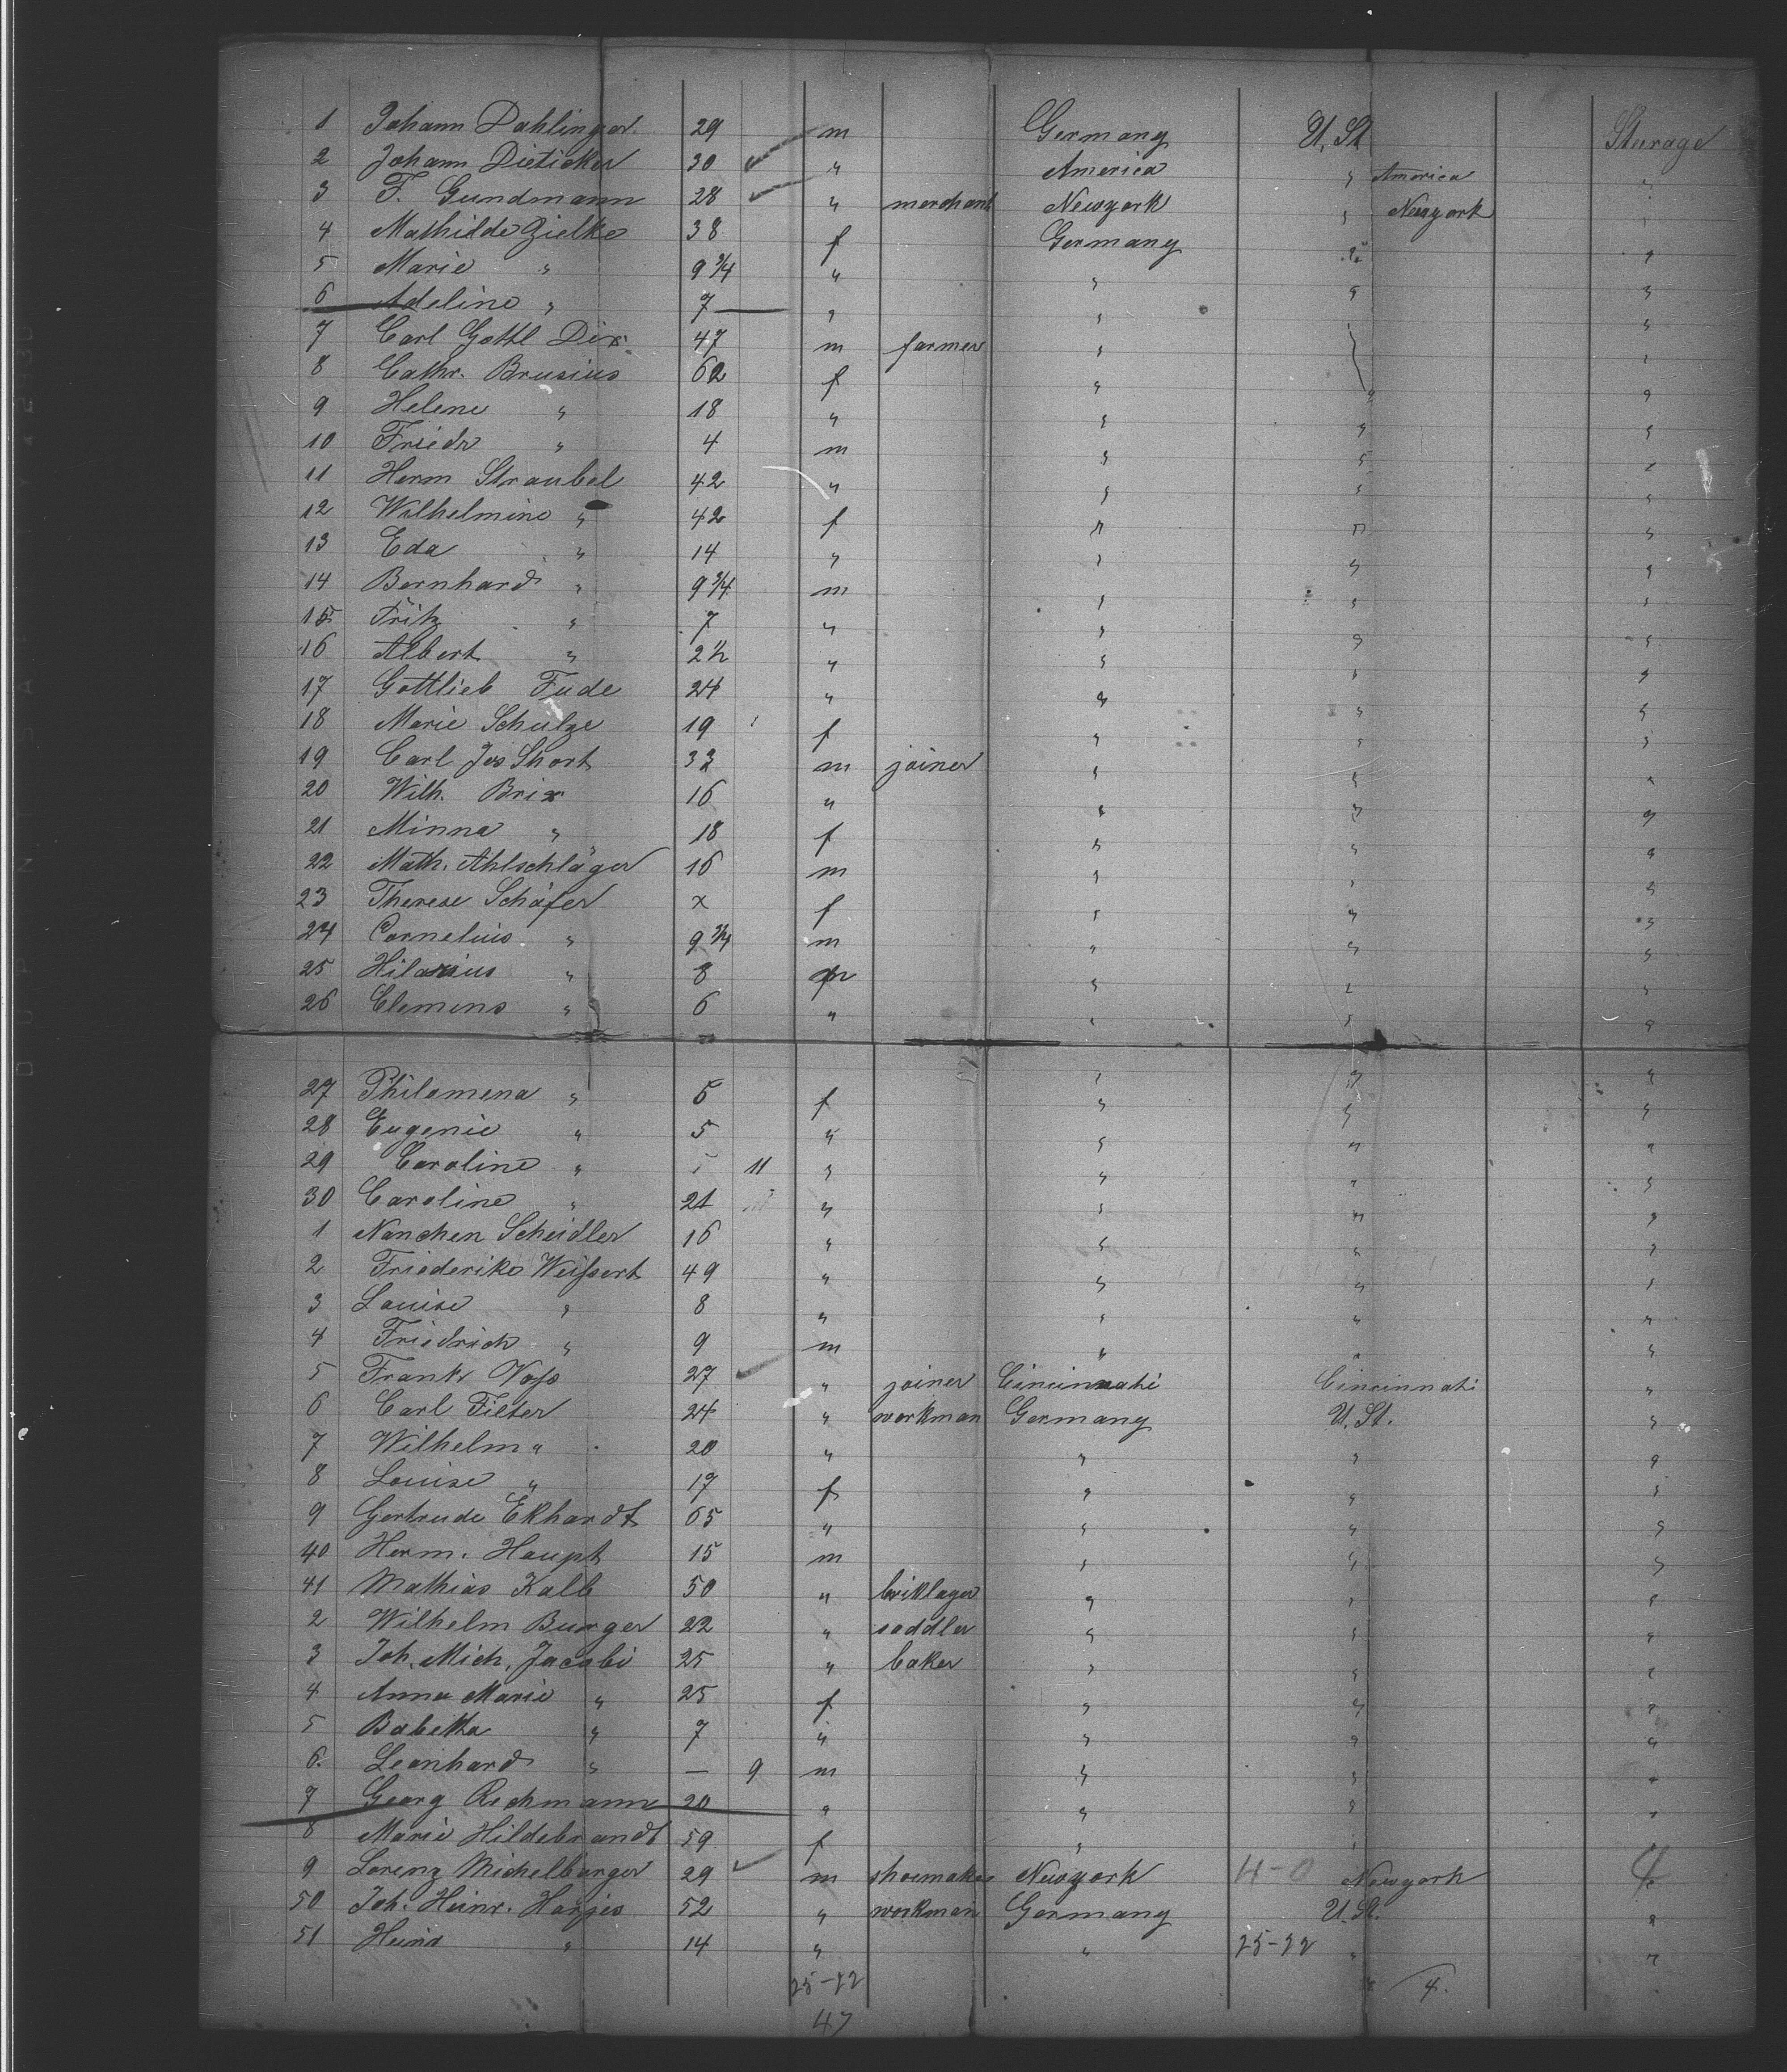 1 Johann Dahlinger 29 m Germany U. St Steerage
2 Johann Dieticker 30 " America " America "
3 F. Gundmann 28 " merchant Newyork " Newyork "
4 Mathilde Zielke 38 f Germany " "
5 Marie " 9 3/4 " " " "
6 Adeline " 7 " " " "
7 Carl Gottl Dix 47 m farmer " "
8 Cathr. Brusius 62 f " " "
9 Helene " 18 " " " "
10 Friedr " 4 m " " "
11 Herm Straubel 42 " " " "
12 Wilhelmine " 42 f " " "
13 Eda " 14 " " " "
14 Bernhard " 9 3/4 m " " "
15 Fritz " 7 " " " "
16 Albert " 2 1/2 " " " "
17 Gottlieb Fude 24 " " " "
18 Marie Schulze 19 f " " "
19 Carl Jos Short 33 m joiner " " "
20 Wilh. Brix 16 " " " "
21 Minna " 18 f " " "
22 Math. Ahlschläger 16 m " " "
23 Therese Schäfer x f " " "
24 Cornelius " 9 3/4 m " " "
25 Hilarius " 8 m " " "
26 Clemens " 6 " " " "
27 Philomena " 6 f " " "
28 Eugenie " 5 " " " "
29 Caroline " 11 " " " "
30 Caroline " 21 " " " "
1 Nanchen Scheidler 16 " " " "
2 Friederike Weißert 49 " " " "
3 Louise " 8 " " " "
4 Friedrich " 9 m " " "
5 Frank Voß 27 " joiner Cincinnati Cincinnati "
6 Carl Filter 24 " workman Germany U. St. "
7 Wilhelm " 20 " " " "
8 Louise " 17 f " " "
9 Gertrude Ekhardt 65 " " " "
40 Herm. Haupt 15 m " " "
41 Mathias Kalb 50 " briklayer " " "
2 Wilhelm Burger 22 " saddler " " "
3 Joh. Mich. Jacobi 25 " baker " " "
4 Anna Marie " 25 f " " "
5 Babetta " 7 " " " "
6. Leonhard " — 9 m " " "
7 Georg Rechmann 20 " " " "
8 Marie Hildebrandt 59 f " " "
9 Lorenz Michelbarger 29 m shoemaker Newyork 4-0 Newyork
50 Joh. Heinr. Harjes 52 " workman Germany U. St. "
51 Heinr " 14 " " 25-22 " "
25-22 4.
47